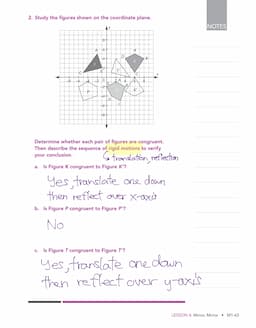 2. Study the figures shown on the coordinate plane.
NOTES
Determine whether each pair of figures are congruent.
Then describe the sequence of rigid motions to verify
your conclusion.
↳ translation, reflection
a. Is Figure K congruent to Figure K'?
Yes, translate one down
then reflect over x-axis
b. Is Figure P congruent to Figure P'?
No
c. Is Figure T congruent to Figure T'?
Yes, translate one down
then reflect over y-axis
LESSON 4: Mirror, Mirror • M1-63